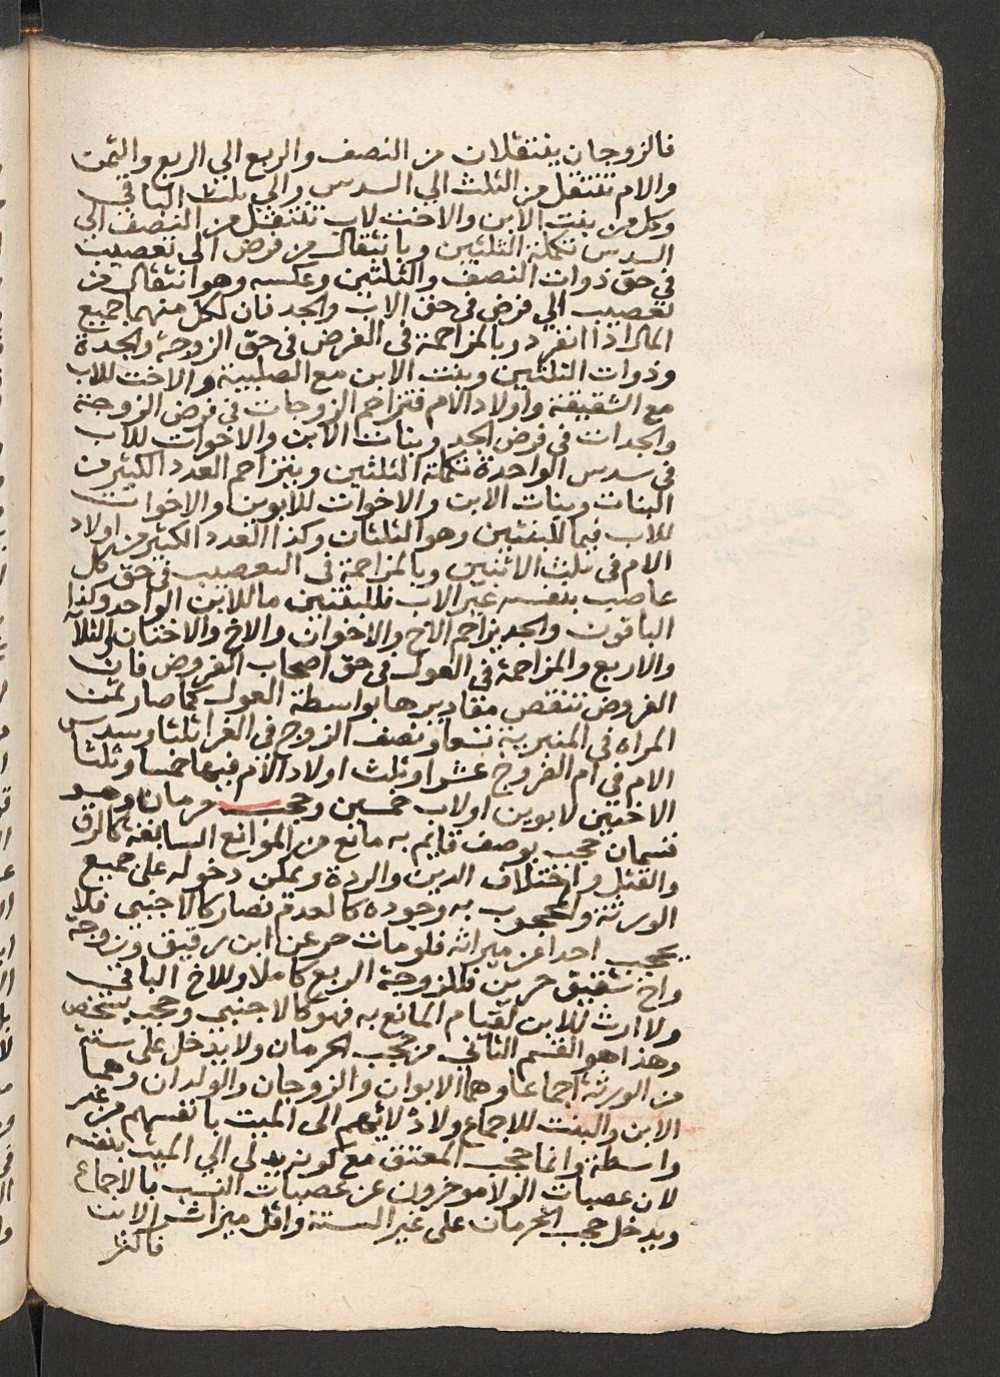 فالزوجان ينتقلان من النصف والربع الي الربع والثمن
والام تنتقل من الثلث الي السدس والي ثلث الباقي
وكل من بنت الابن والاخت لاب تنتقل من النصف الى
السدس تكملة الثلثين وبانتقال من فرض الى تعصيب
في حق ذوات النصف والثلثين وعكسه وهو انتقال من
تعصيب الي فرض في حق الاب والجد فان لكل منهما جميع
المال اذا انفرد وبالمزاحمة في الفرض في حق الزوجة والجدة
وذوات الثلثين وبنت الابن مع الصلبية والاخت للاب
مع الشقيقة واولاد الام فتزاحم الزوجات في فرض الزوجة
والجدات في فرض الجد وبنات الابن والاخوات للاب
في سدس الواحدة تكملة الثلثين ويتزاحم العدد الكثير من
البنات وبنات الابن والاخوات للابوين والاخوات
للاب فيما للبنتين وهو الثلثان وكذا العدد الكثير من اولاد
الام في ثلث الاثنين وبالمزاحمة في التعصيب في حق كل
عاصب بنفسه غير الاب فللبنتين ما للابن الواحد وكذا
الباقون والجد يزاحم الاخ والاخوان والاخ والاختان والثلاث
والاربع والمزاحمة في العول في حق اصحاب الفروض فان
الفروض تنقص مقاديرها بواسطة العول كما صار ثمن
المراه في المنبرية تسعا ونصف الزوج في الغرا ثلثا وسدس
الام في ام الفروج عشرا وثلث اولاد الام فيها خمسا وثلثا
الاختين لابوين اولاب خمسين وحجب حرمان وهو
قسمان حجب بوصف قايم به مانع من الموانع السابقة كالرق
والقتل واختلاف الدين والردة ويمكن دخوله على جميع
الورثة والمحجوب به وجوده كالعدم فصار كالاجنبي فلا
يحجب احدا عن ميراثه فلو مات حر عن ابن رقيق وزوجة
واخ شقيق حرين فللزوجة الربع كاملا وللاخ الباقي
ولا ارث للابن لقيام المانع به فهو كالاجنبي وحجب بشخص
وهذا هو القسم الثاني من حجب الحرمان ولا يدخل على ستة
من الورثة اجماعا وهما الابوان والزوجان والولدان وهما
الابن والبنت للاجماع ولادلائهم الى الميت بانفسهم من غير
واسطة وانما حجب المعتق مع كونه يدلى الي الميت بنفسه
لان عصبات الولا موخرون عن عصبات النسب بالاجماع
ويدخل حجب الحرمان على غير الستة واقل ميراث الابن